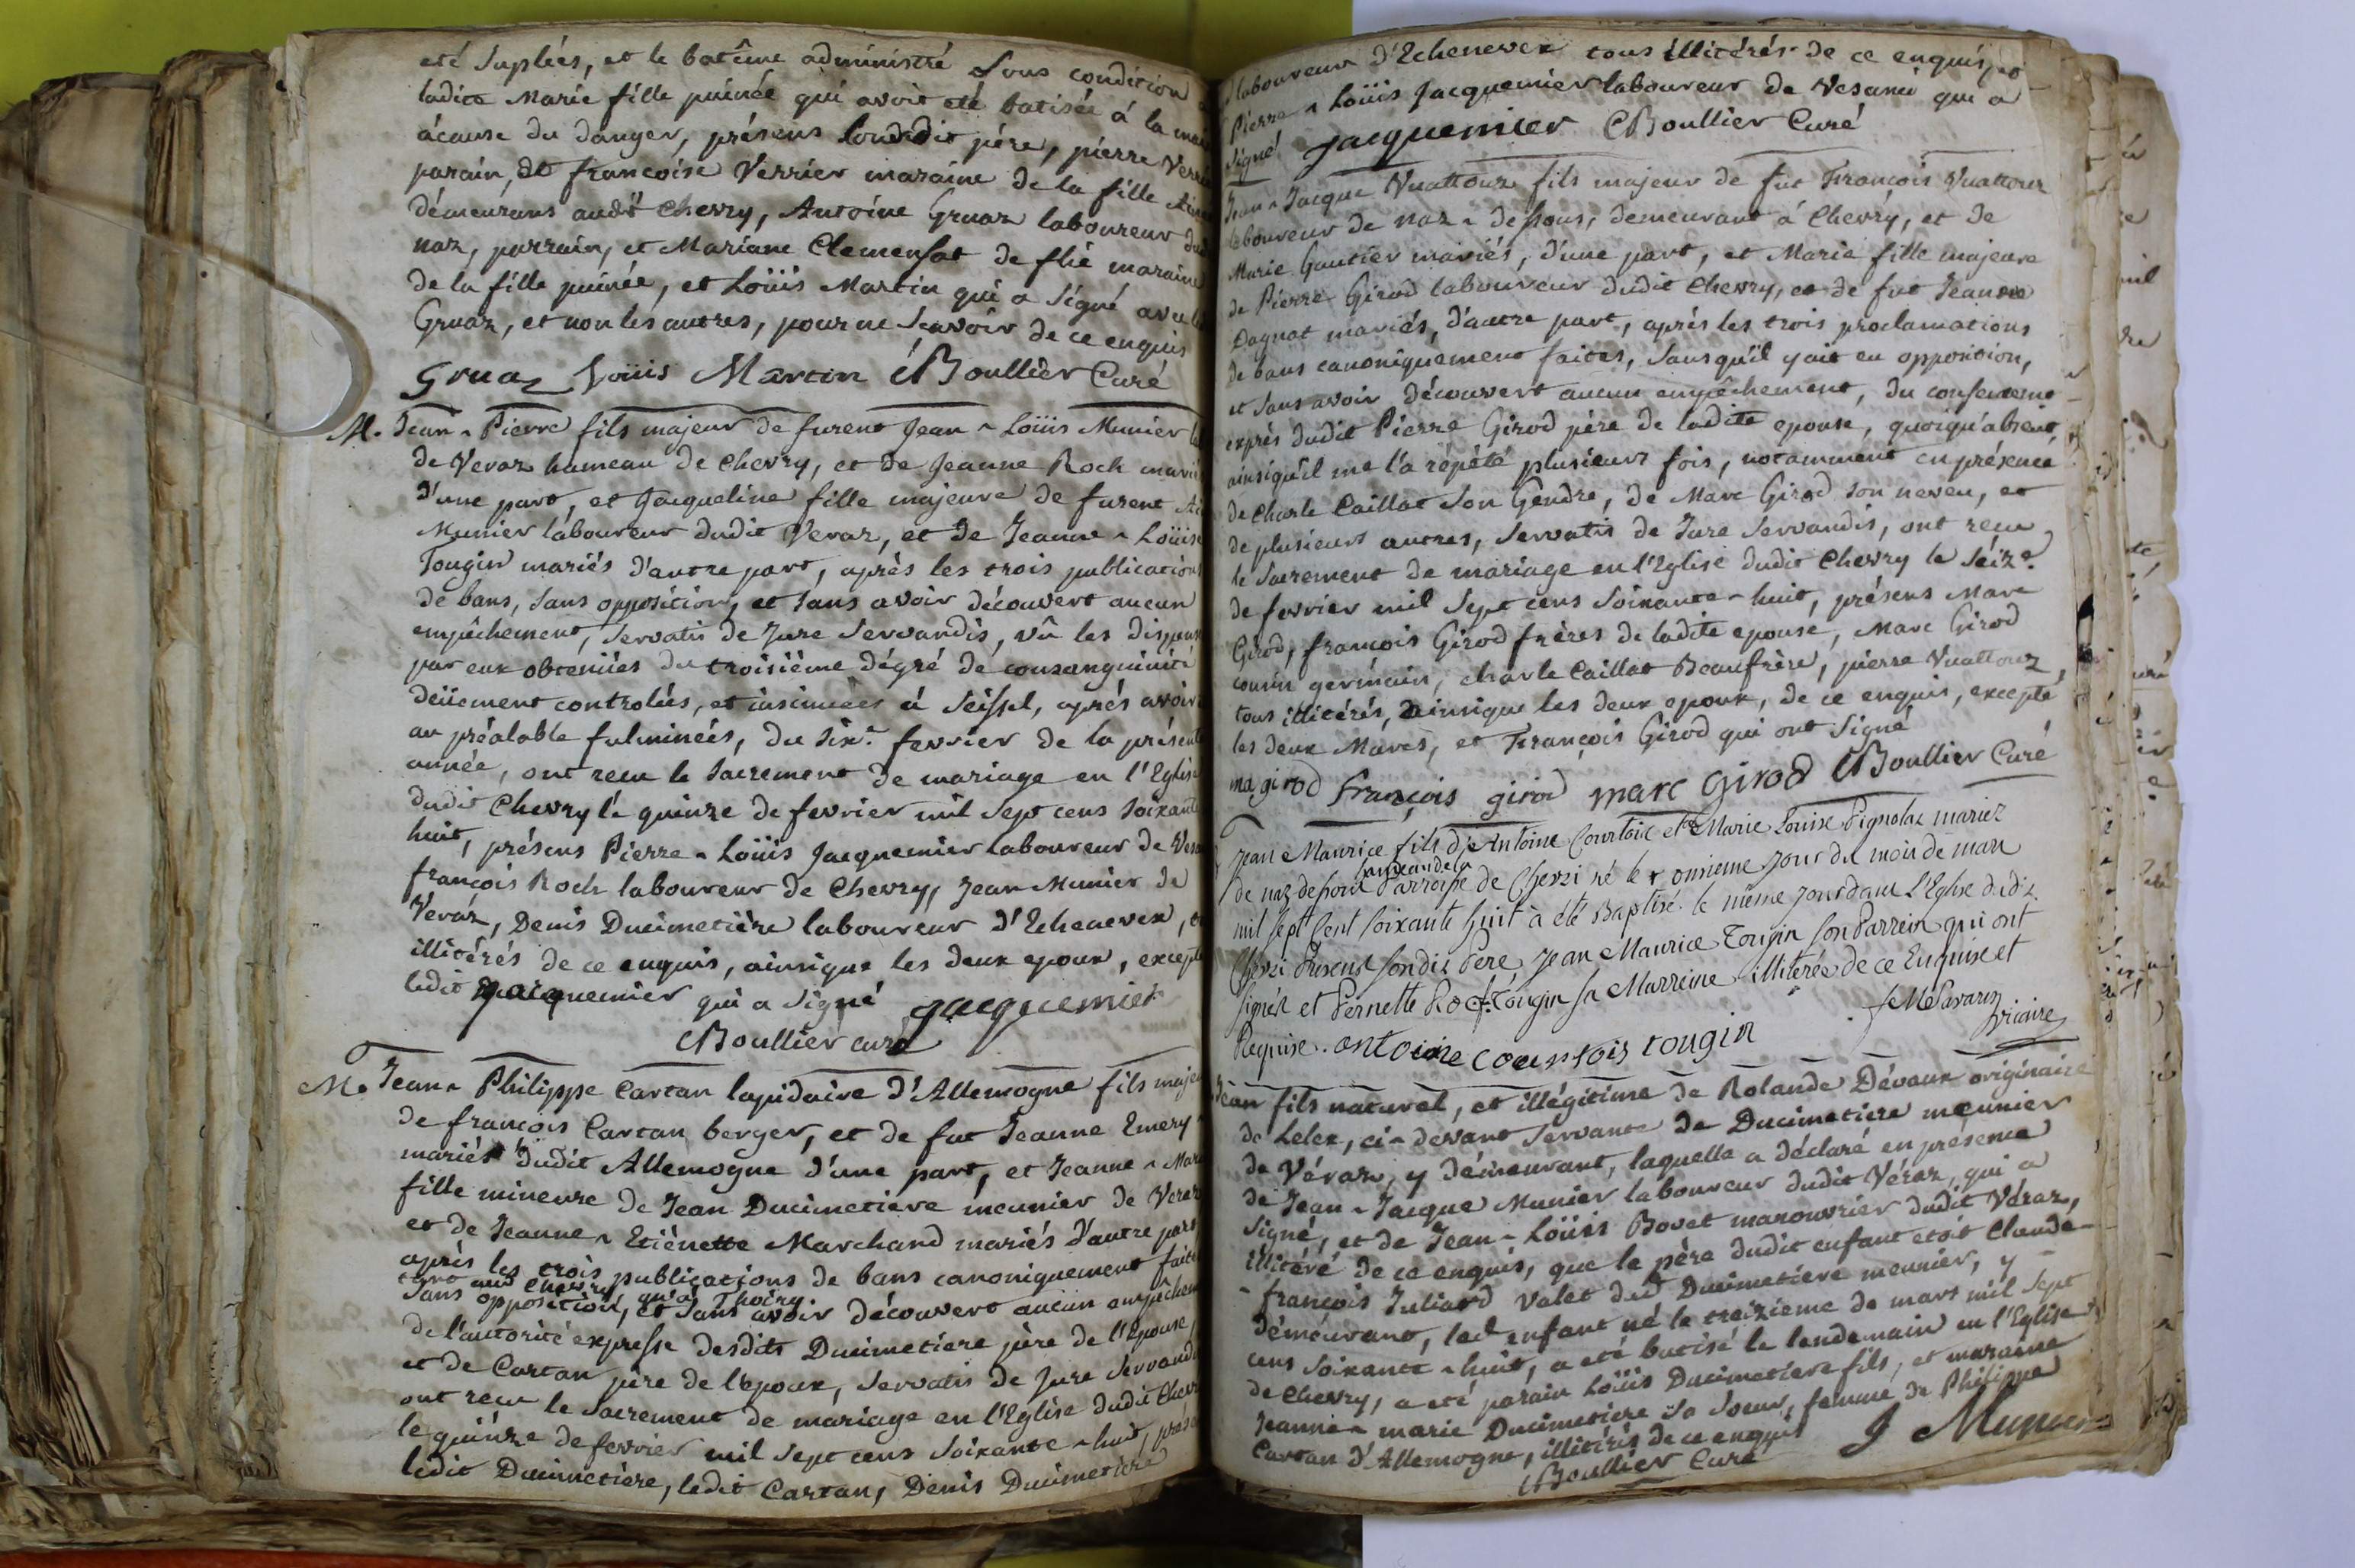 eté supleés, et le batême administré sous condition
ladite Marie fille puinée qui avoit eté batisée à la
àcause du danger, présens ledit père, pierre
parain, et francoise Verrier maraine de la fille
démeurans audit Chevry, Antoine Gruaz laboureur
naz, parrain, et Mariane Clemensat de flié maraine
de la fille puinée, et Loüis Martin qui a signé avec
Gruaz, et non les autres, pour ne sçavoir de ce enquis
Gruaz Loüis Martin Boullier Curé
M. Jean-Pierre fils majeur de furent Jean-Loüis Munier
de Veraz hameau de Chevry, et de Jeanne Roch
d'une part, et Jacqueline fille majeure de furent
Munier laboureur dudit Veraz, et de Jeanne-Loüise
Tougin mariés d'autre part, après les trois publications
de bans, sans opposition, et sans avoir découvert aucun
empêchement, servatis de Jure servandis, vû les
par eux obtenües du troisième dégré de consanguinité
deüement controlées, et insinuées à Seissel, après avoir
au préalable fulminées, du six.e fevrier de la présente
année, ont reçu le sacrement de mariage en l'Eglise
dudit Chevry le quinze de fevrier mil sept cens soixante
huit, présens Pierre-Loüis Jacquemier laboureur de
françois Roch laboureur de Chevry, Jean Munier de
Véraz, Denis Ducimetière laboureur d'Echenevex,
illitérés de ce enquis, ainsique les deux epoux, excepté
ledit Jacquemier qui a signé Jacquemier
Boullier curé
M. Jean-Philippe Cartan lapidaire d'Allemogne fils
de françois Cartan berger, et de fut Jeanne Emery
mariés dudit Allemogne d'une part, et Jeanne-
fille mineure de Jean Ducimetiere meunier de Veraz
et de Jeanne-Etiènette Marchand mariés d'autre part
après les trois publications de bans canoniquement faites
tant aud Chevry qu'à Thoiry.
sans opposition, et sans avoir découvert aucun
de l'autorité expresse desdits Ducimetiere père de l'Epouse,
et de Cartan père de l'epoux, servatis de Jure servandis
ont reçu le sacrement de mariage en l'Eglise dudit
le quinze de fevrier mil sept cens soixante-huit,
ledit Ducimetière, ledit Cartan, Denis Ducimetiere
laboureur d'Echenevex tous illitérés de ce enquis, et
Pierre-Loüis Jacquemier laboureur de Vesanci qui a
signé Jacquemier Boullier Curé
Jean-Jacque Vuattoux fils majeur de fut François Vuattoux
laboureur de naz-dessous, demeurant à Chevry, et de
Marie Gautier mariés, d'une part, et Marie fille majeure
de Pierre Girod laboureur dudit Chevry, et de fut Jeanne
Dagnat mariés, d'autre part, après les trois proclamations
de bans canoniquement faites, sans qu'il y ait eu opposition,
et sans avoir découvert aucun empêchement, du consentement
exprès dudit Pierre Girod père de ladite epouse, quoiqu'absent,
ainsiqu'il me l'a répété plusieurs fois, notamment en présence
de Charle Caillat son Gendre, de Marc Girod son neveu, et
de plusieurs autres, servatis de Jure servandis, ont reçu
le sacrement de mariage en l'Eglise dudit Chevry le séize
de fevrier mil sept cens soixante-huit, présens Marc
Girod, françois Girod frères de ladite epouse, Marc Girod
cousin germain, charle Caillat Beaufrère, pierre Vuattoux,
tous illitérés, ainsique les deux epoux, de ce enquis, excepté
les deux Marcs, et François Girod qui ont signé
ma girod François girod marc Girod Boullier Curé
Jean Maurice fils d'Antoine Courtois et Marie Louise Pignolaz mariez
de naz dessous Parroisse de Chevri né le onsieme jour du mois de mars
mil sept cent soixante huit à été Baptisé le même jour dans L'Eglise dudit
Chevri Presens son dit Pere, Jean Maurice Tougin son Parrein qui ont
signés et Pernette Roch Tougin sa Marreine illiterée de ce Enquise et
Requise. antoine courtois tougin vicaire
Jean fils naturel, et illégitime de Rolande Dévaux originaire
de Lelex, ci-devant servante de Ducimetiere meunier
de Véraz, y démeurant, laquelle a déclaré en présence
de Jean-Jacque Munier laboureur dudit Véraz, qui a
signé, et de Jean-Loüis Bovet manouvrier dudit Véraz,
illitéré de ce enquis, que le père dudit enfant etoit Claude-
-françois Juliard valet dud Ducimetiere meunier, y
démeurant, led enfant né le treizieme de mars mil sept
cens soixante-huit, a eté batisé le lendemain en l'Eglise
de Chevry, a eté parain Loüis Ducimetiere fils, et maraine
Jeanne-marie Ducimetiere sa soeur, femme de Philippe
Cartan d'Allemogne, illitérés de ce enquis J Munier
Boullier Curé